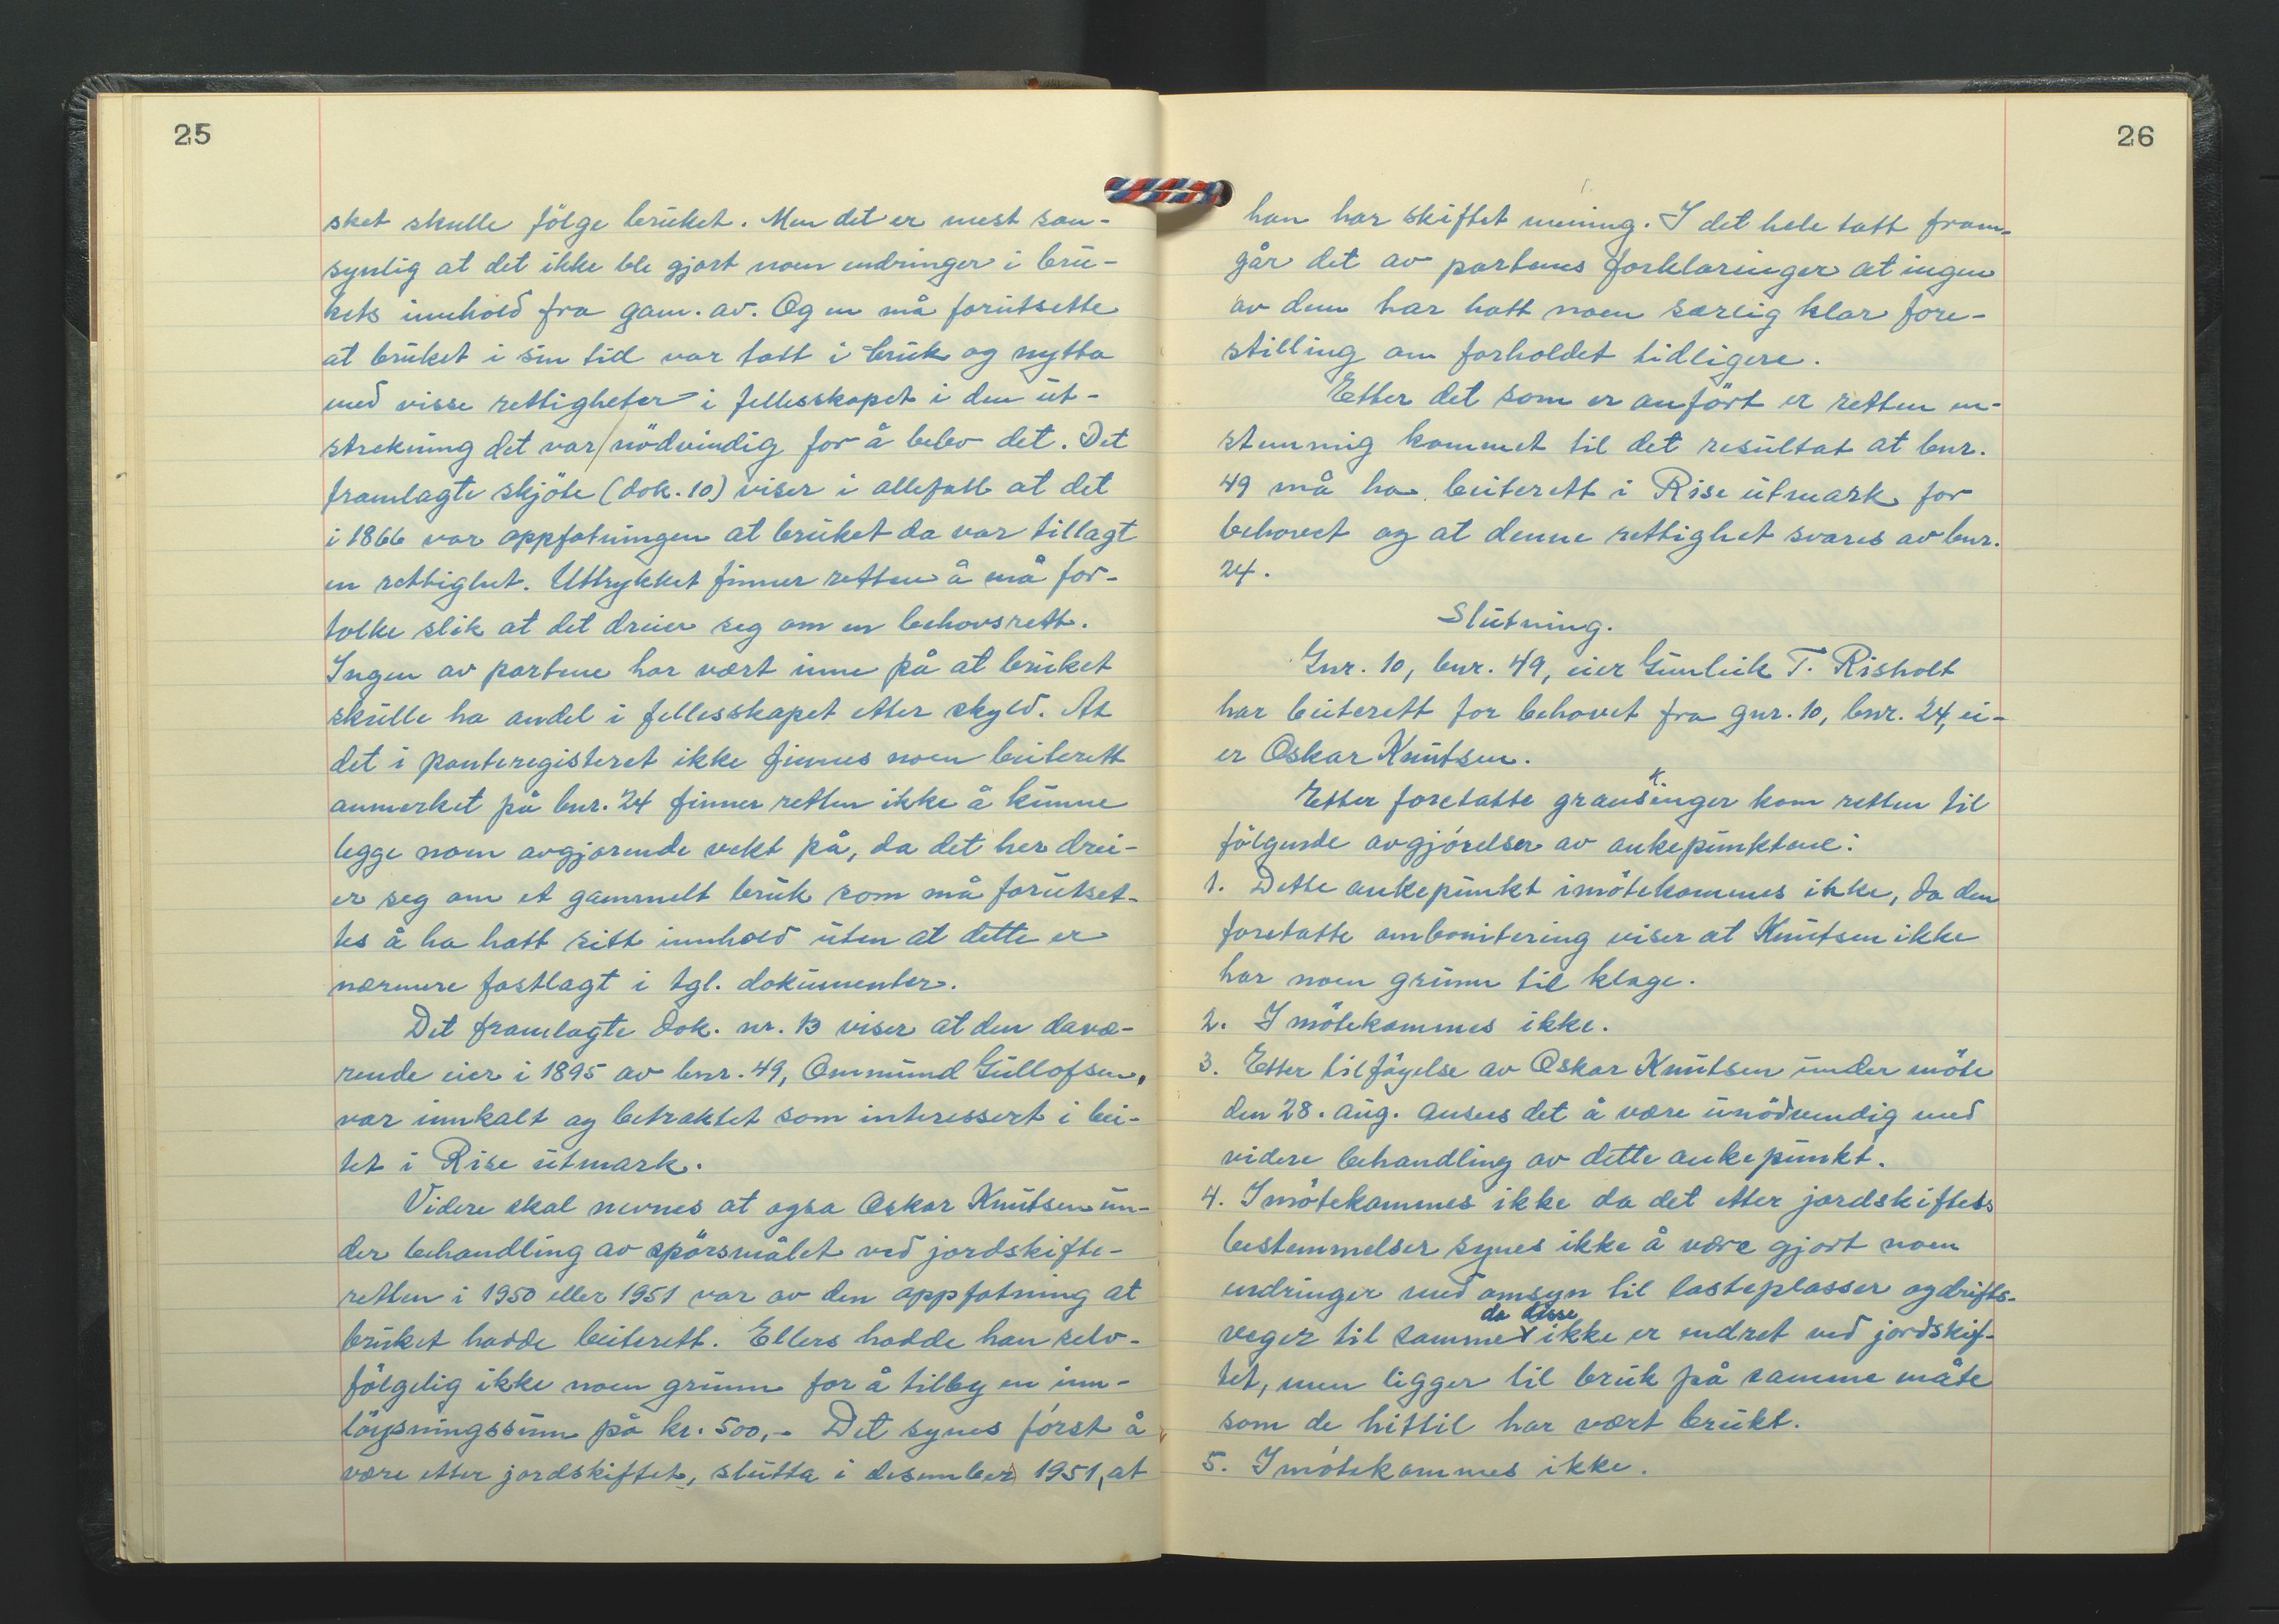 25
sket skulle fölge bruket. Men det er mest san-
synlig at det ikke ble gjort noen endringer i bru-
kets innhold fra gam. av. Og en må forutsette
at bruket i sin tid var tatt i bruk og nytta
med visse rettigheter i fellesskapet i den ut-
strekning det var nödvindig for å belev det. Det
framlagte skjöte (dok. 10) viser i allefall at det
i 1866 var oppfatningen at bruket da var tillagt
en rettighet. Uttrykket finner retten å må for-
tolke slik at det dreier seg om en behovsrett.
Ingen av partene har vært inne på at bruket
skulle ha andel i fellesskapet etter skyld. At
det i panteregisteret ikke finnes noen beiterett
anmerket på bnr. 24 finner retten ikke å kunne
legge noen avgjörende vekt på, da det her drei-
er seg om et gammelt bruk som må forutset-
tes å ha hatt sitt innhold uten at dette er
nærmere fastlagt i tgl. dokumenter.
Det framlagte dok. nr. 13 viser at den davæ-
rende eier i 1895 av bnr. 49, Ommund Gullofsen,
var innkalt og betraktet som interessert i bei-
tet i Rise utmark.
Videre skal nevnes at også Oskar Knutsen un-
der behandling av spörsmålet ved jordskifte-
retten i 1950 eller 1951 var av den oppfatning at
bruket hadde beiterett. Ellers hadde han selv-
fölgelig ikke noen grunn for å tilby en inn-
löysningssum på kr. 500,- Det synes först å
være etter jordskiftet, slutta i desember 1951, at
26
han har skiftet mening. I det hele tatt fram-
går det av partenes forklaringer at ingen
av dem har hatt noen særlig klar fore-
stilling om forholdet tidligere.
Etter det som er anfört er retten en-
stemmig kommet til det resultat at bnr.
49 må ha beiterett i Rise utmark for
behovet og at denne rettighet svares av bnr.
24.
Slutning.
Gnr. 10, bnr. 49, eier Gunleik T. Risholt
har beiterett for behovet fra gnr. 10, bnr. 24, ei-
er Oskar Knutsen.
Etter foretatte gransk̇inger kom retten til
fölgende avgjörelser av ankepunktene:
1. Dette ankepunkt imötekommes ikke, da den
foretatte ombonitering viser at Knutsen ikke
har noen grunn til klage.
2. Imötekommes ikke.
3. Etter tilföyelse av Oskar Knutsen under möte
den 28. aug. anses det å være unödvendig med
videre behandling av dette ankepunkt.
4. Imötekommes ikke da det etter jordskiftets
bestemmelser synes ikke å være gjort noen
endringer med omsyn til lasteplasser og drifts-
veger til samme da disse ikke er endret ved jordskif-
tet, men ligger til bruk på samme måte
som de hittil har vært brukt.
5. Imötekommes ikke.